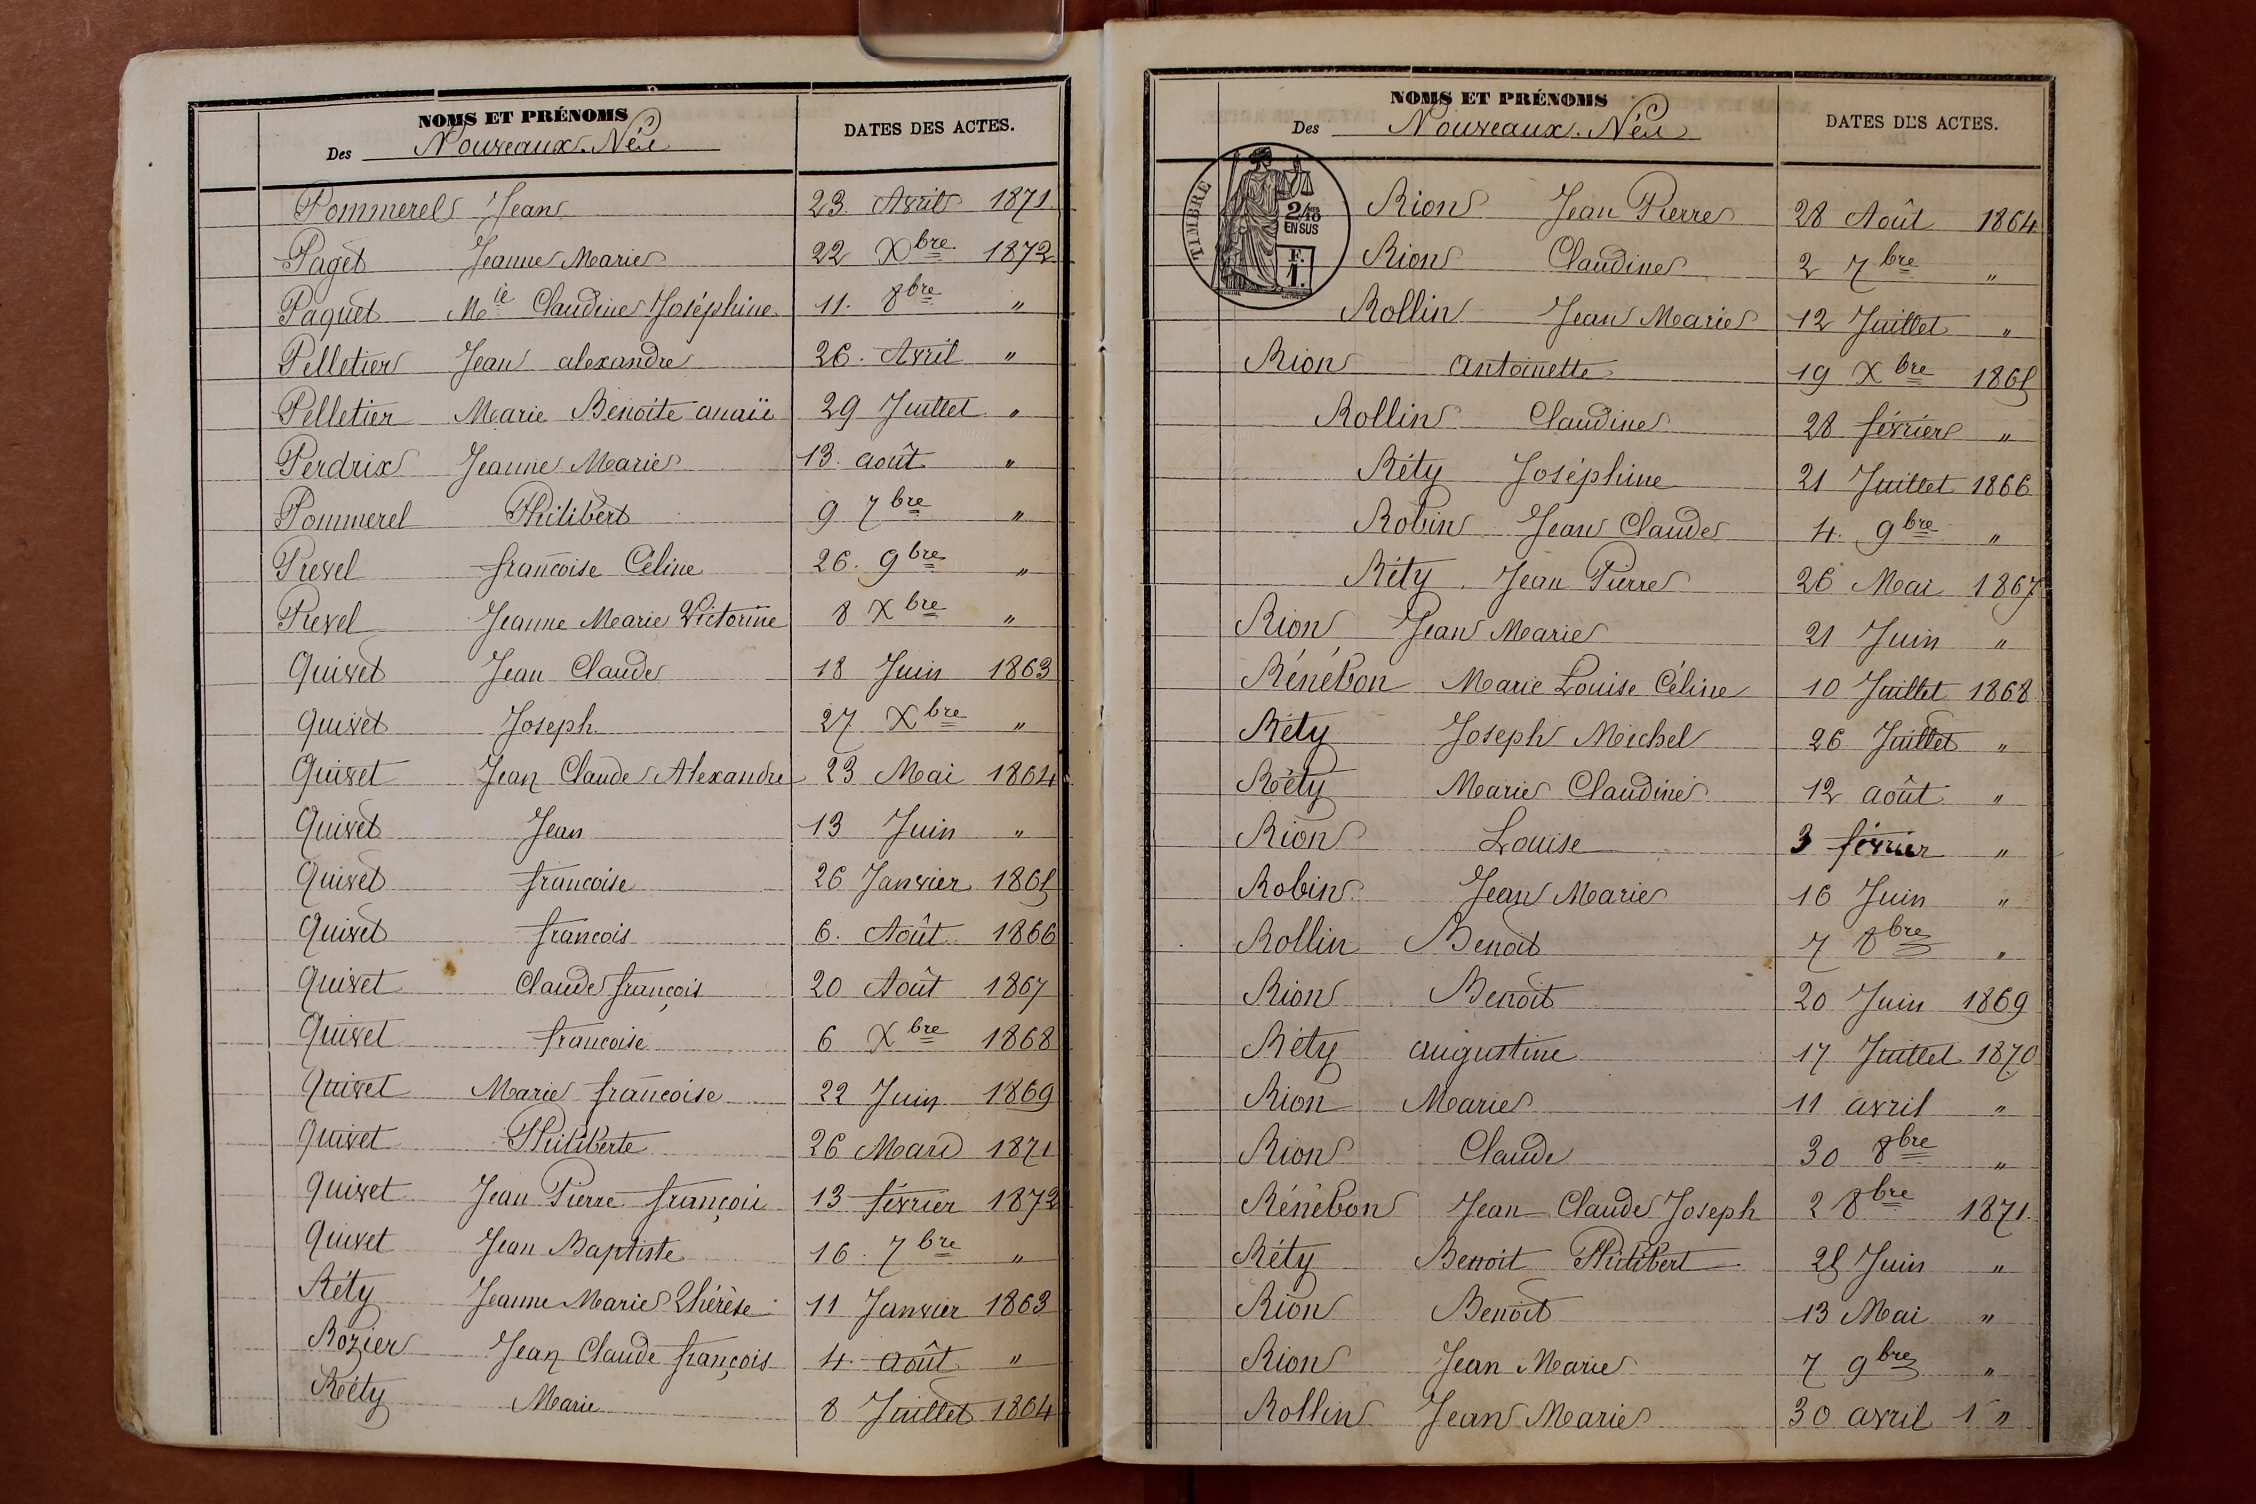 NOMS ET PRÉNOMS
Des Nouveaux-Nés
DATES DES ACTES.
Pommerel Jean 23 Avril 1871
Paget Jeanne Marie 22 Xbre 1872
Paquet Mie Claudine Joséphine 11. 8bre "
Pelletier Jean alexandre 26. Avril "
Pelletier Marie Benoite anaïs 29 Juillet "
Perdrix Jeanne Marie 13. août "
Pommerel Philibert 9 7bre "
Prevel françoise Céline 26. 9bre "
Prevel Jeanne Marie Victorine 8 Xbre "
Quivet Jean Claude 18 Juin 1863
Quivet Joseph 27 Xbre "
Quivet Jean Claude Alexandre 23 Mai 1864
Quivet Jean 13 Juin "
Quivet francoise 26 Janvier 1865
Quivet francois 6. Août 1866
Quivet Claude françois 20 Août 1867
Quivet francoise 6 Xbre 1868
Quivet Marie francoise 22 Juin 1869
Quivet Philiberte 26 Mars 1871
Quivet Jean Pierre françois 13 février 1872
Quivet Jean Baptiste 16. 7bre "
Réty Jeanne Marie Thérèse 11 Janvier 1863
Rozier Jean Claude françois 4. août "
Réty Marie 8 Juillet 1864
NOMS ET PRÉNOMS
Des Nouveaux-Nés
DATES DES ACTES.
TIMBRE
2/10
EN SUS
F.
1.
Rion Jean Pierre 28 Août 1864
Rion Claudine 2 7bre "
Rollin Jean Marie 12 Juillet "
Rion antoinette 19 Xbre 1865
Rollin Claudine 28 février "
Réty Joséphine 21 Juillet 1866
Robin Jean Claude 4. 9bre "
Réty Jean Pierre 26 Mai 1867
Rion Jean Marie 21 Juin "
Rénébon Marie Louise Céline 10 Juillet 1868
Réty Joseph Michel 26 Juillet "
Réty Marie Claudine 12 août "
Rion Louise 3 février "
Robin Jean Marie 16 Juin "
Rollin Benoit 7 8bre "
Rion Benoit 20 Juin 1869
Réty augustine 17 Juillet 1870
Rion Marie 11 avril "
Rion Claude 30 8bre "
Rénébon Jean Claude Joseph 2 8bre 1871
Réty Benoit Philibert 25 Juin "
Rion Benoit 13 Mai "
Rion Jean Marie 7 9bre "
Rollin Jean Marie 30 avril 1 "